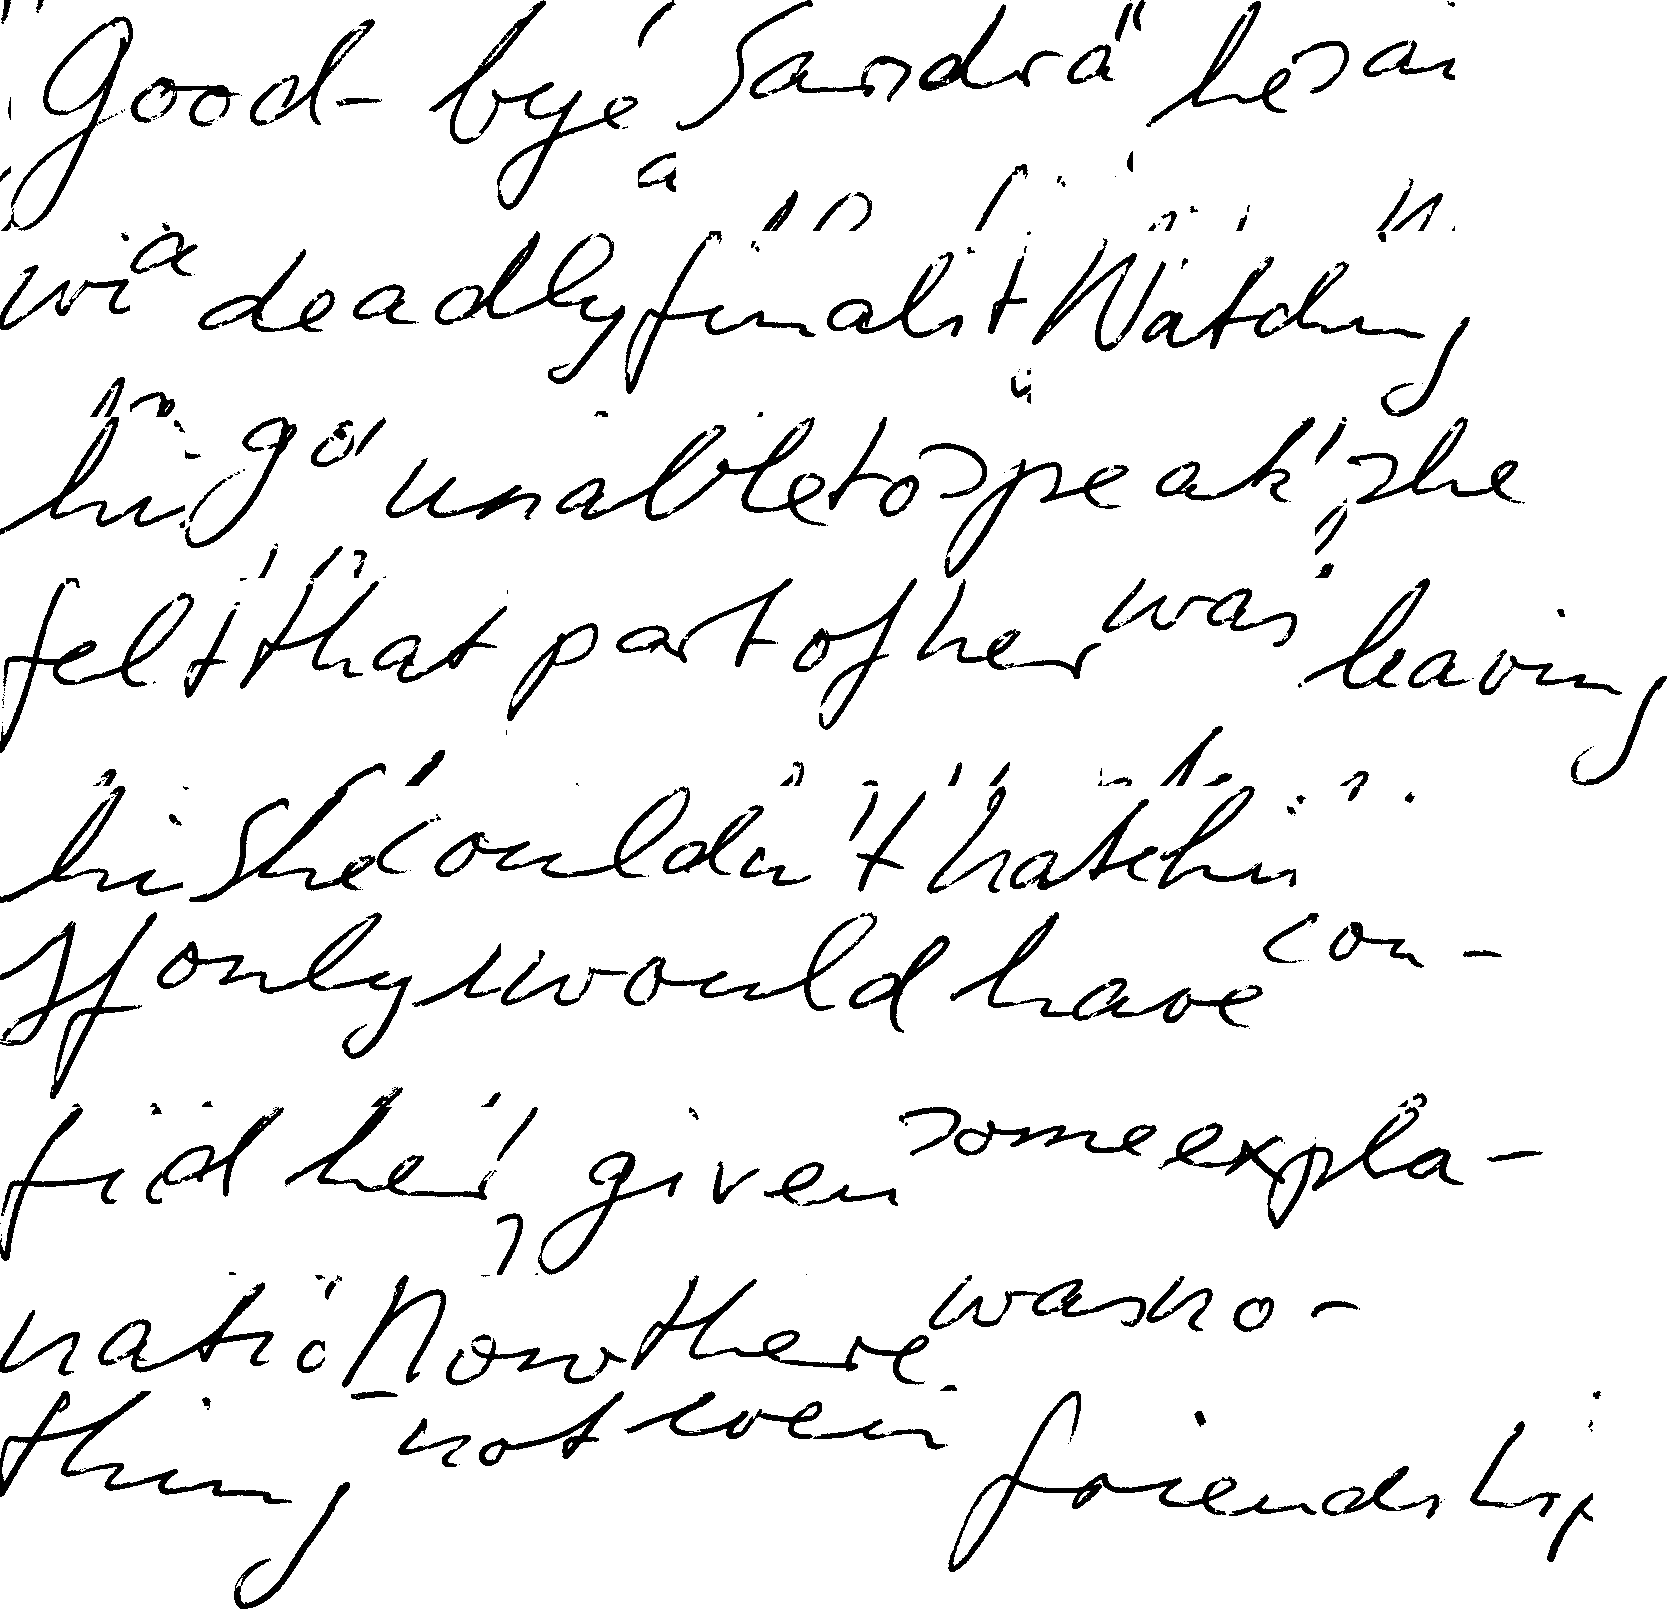 "Good-bye, Sandra" he sai
wi a deadly finalit Watching
hi go, unable to speak, she
felt that part of her was leaving
hi She couldn't hate hi
If only would have con-
fid her, given some expla-
natio Now there was no-
thing, not even friendship